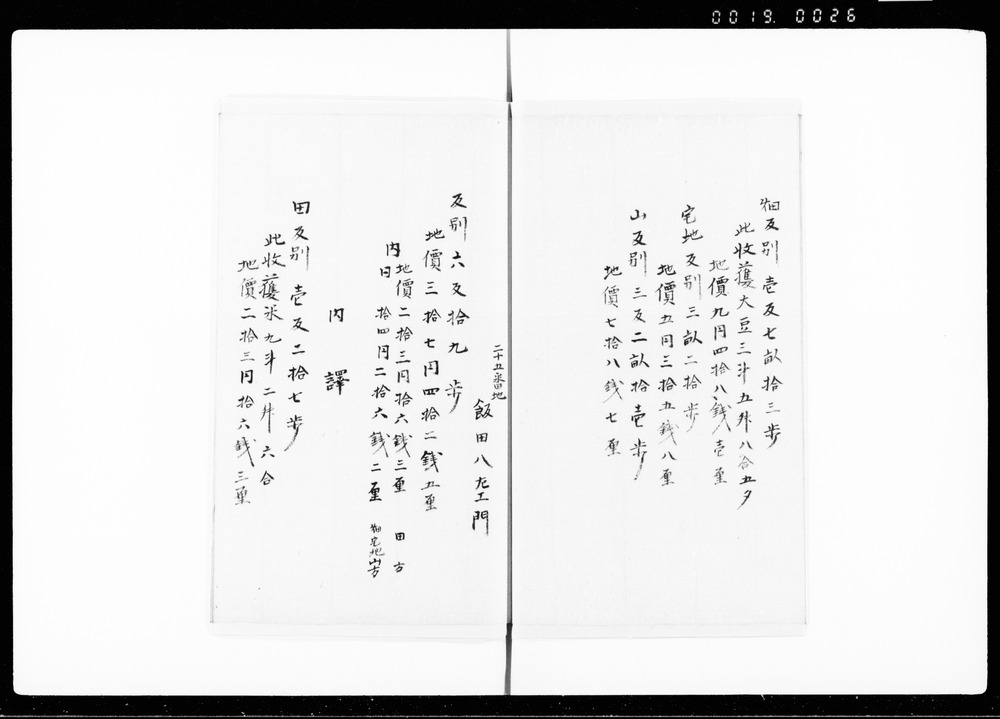 0019. 0026
畑反別 壱反七畝拾三歩
此收獲大豆三斗五舛八合五夕
地價九円四拾八銭壱厘
宅地反別 三畝二拾歩
地價五円三拾五銭八厘
山反別 三反二畝拾壱歩
地價七拾八銭七厘
二十五番地
飯田八左エ門
反別六反拾九歩
地價三拾七円四拾二銭五厘
内
地價二拾三円拾六銭三厘 田方
同 拾四円二拾六銭二厘 畑宅地山方
内譯
田反別 壱反二拾七歩
此收獲米九斗二舛六合
地價二拾三円拾六銭三厘